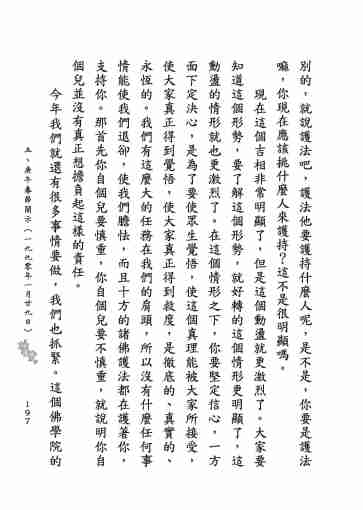 別的，就說護法吧，護法他要護持什麼人呢，是不是，你要是護法
嘛，你現在應該挑什麼人來護持？這不是很明顯嗎。
現在這個吉相非常明顯了，但是這個動盪就更激烈了。大家要
知道這個形勢，要了解這個形勢，就好轉的這個情形更明顯了，這
動盪的情形就也更激烈了。在這個情形之下，你要堅定信心，一方
面下定決心，是為了要使眾生覺悟，使這個真理能被大家所接受，
使大家真正得到覺悟，使大家真正得到救度，是徹底的、真實的、
永恆的。我們有這麼大的任務在我們的肩頭，所以沒有什麼任何事
情能使我們退卻，使我們膽怯，而且十方的諸佛護法都在護著你，
支持你。那首先你自個兒要慎重，你自個兒要不慎重，就說明你自
個兒並沒有真正想擔負起這樣的責任。
今年我們就還有很多事情要做，我們也抓緊。這個佛學院的
五、庚午春節開示（一九九零年一月廿九日）
197